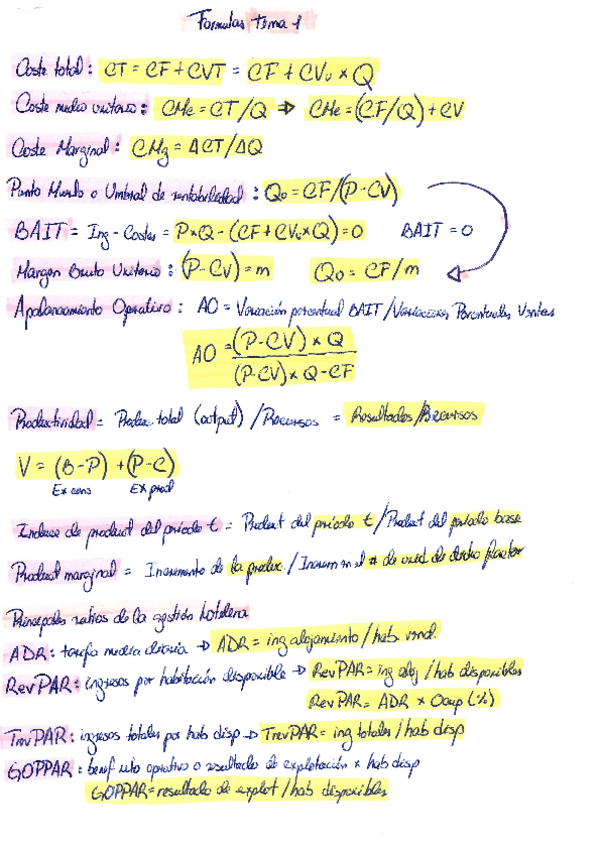 Formulas Tema 1
Coste total: CT = CF + CVT = CF + CVu × Q
Coste medio unitario: CMe = CT/Q ⇒ CMe = (CF/Q) + CV
Coste Marginal: CMg = ΔCT/ΔQ
Punto Muerto o Umbral de rentabilidad: Q0 = CF/(P-CV)
BAIT = Ing - Costes = P×Q - (CF + CVu×Q) = 0 BAIT = 0
Margen Bruto Unitario: (P-CV) = m Q0 = CF/m
Apalancamiento Operativo: AO = Variación porcentual BAIT/Variaciones Porcentuales Ventas
AO = (P-CV) × Q
(P-CV) × Q - CF
Productividad = Produc. total (output) / Recursos = Resultados/Recursos
V = (B-P) + (P-C)
Ex cons Ex prod
Indice de product del periodo t = Product del periodo t / Product del periodo base
Product marginal = Incremento de la produc. / Increm en el # de unid de dicho factor
Principales ratios de la gestión hotelera
ADR: tarifa media diaria → ADR = ing alojamiento / hab. vend.
RevPAR: ingresos por habitación disponible → RevPAR = ing aloj / hab disponibles
RevPAR = ADR × Ocup (%)
TrevPAR: ingresos totales por hab disp → TrevPAR = ing totales / hab disp
GOPPAR: benef neto operativo o resultado de explotación × hab disp
GOPPAR = resultado de explot / hab disponibles